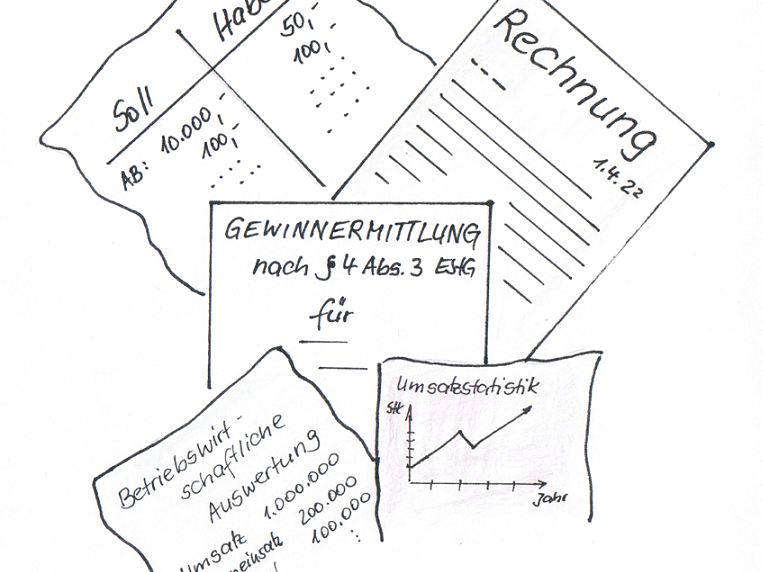 Soll
Habe
AB: 10.000,-
100,-
50,-
100,
Rechnung
1.4.22
GEWINNERMITTLUNG
nach § 4 Abs. 3 EStG
für
Umsatzstatistik
Stk
Jahr
Betriebswirt-
schaftliche
Auswertung
Umsatz 1.000.000
neinsatz 200.000
100.000